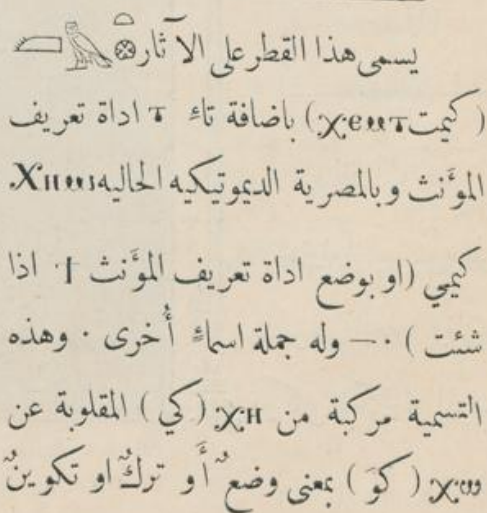 يسمى هذا القطر على الآثار 𓆎𓅓𓏏𓊖
( كيمت ⲭⲉⲙⲧ ) باضافة تاء ⲧ اداة تعريف
المؤَنث وبالمصرية الديموتيكيه الحاليه ⲭⲏⲙⲓ
كيمي (او بوضع اداة تعريف المؤَنث ϯ اذا
شئت ) ٠ — وله جملة اسماءٍ أُخرى ٠ وهذه
التسمية مركبة من ⲭⲏ ( كي ) المقلوبة عن
ⲭⲱ ( كوَ ) بمعنى وضعٌ أَو تركٌ او تكوينٌ